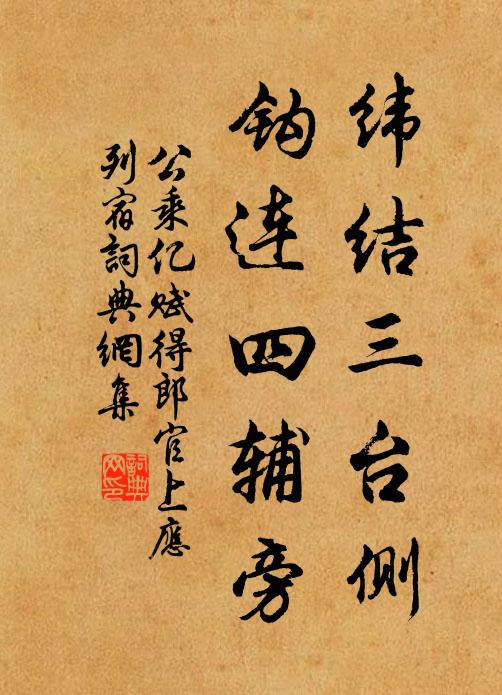 纬结三台侧
钩连四辅旁
公乘亿赋得郎官上應
列宿詞典網集
詞典网印